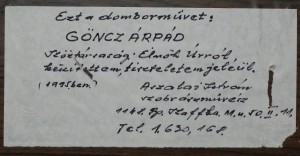 Ezt a domborművet:
GÖNCZ ÁRPÁD
Köztársaság Elnök Úrról
készítettem, tiszteletem jeléül.
(1995ben) Aszalai István
szobrászművész
1141. Bp. Kaffka M. u. 50. II. 11.
Tel. 1.630, 168.